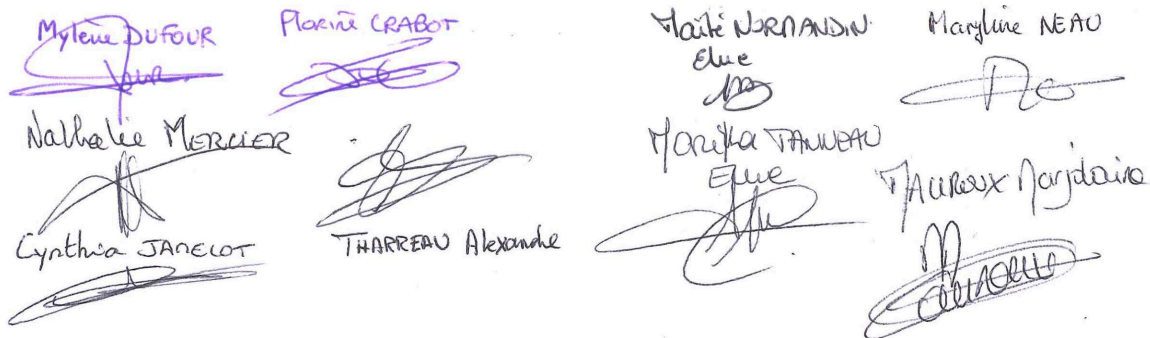 Mylène DUFOUR
Florine CRABOT
Maïté NORMANDIN
Elue
Maryline NEAU
Nathalie MERCIER
TANNEAU
Elue
MAUROUX Marjolaine
Cynthia JAMELOT
THARREAU Alexandre